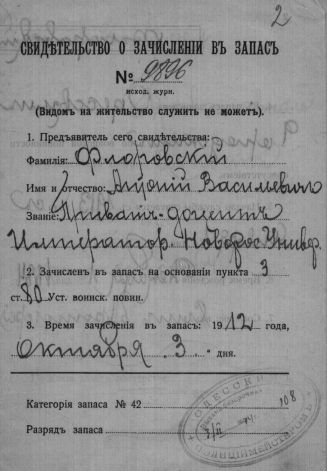 2
СВИДѢТЕЛЬСТВО О ЗАЧИСЛЕНІИ ВЪ ЗАПАСЪ
№ 9896
исход. журн.
(Видомъ на жительство служить не можетъ).
1. Предъявитель сего свидѣтельства:
Фамилія: Флоровскій
Имя и отчество: Антоній Васильевичъ
Званіе: Приватъ-доцентъ
Император. Новорос. Универ.
2. Зачисленъ въ запасъ на основаніи пункта 3
ст. 80 Уст. воинск. повин.
3. Время зачисленія въ запасъ: 1912 года,
Октября 3 дня.
Категорія запаса № 42
108
Разрядъ запаса